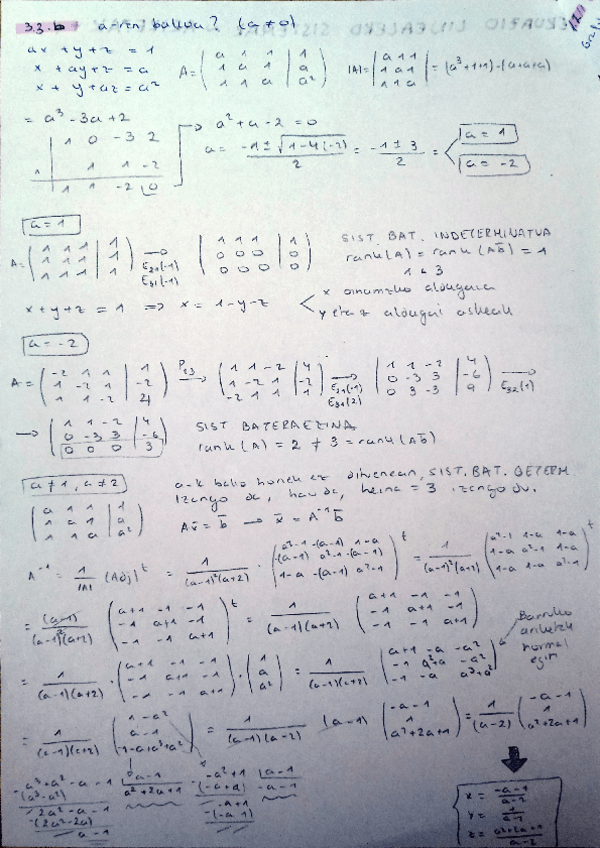 3.3.b a-ren balioa? (a≠0)
ax + y + z = 1
x + ay + z = a
x + y + az = a²
A = ( a 1 1 | 1 ; 1 a 1 | a ; 1 1 a | a² )
|A| = | a 1 1 ; 1 a 1 ; 1 1 a | = (a³+1+1) - (a+a+a)
= a³ - 3a + 2
1 0 -3 2
1 1 1 -2
1 1 -2 0
a² + a - 2 = 0
a = -1 ± √1-4(-2) / 2 = -1 ± 3 / 2 = a = 1
a = -2
a = 1
A = ( 1 1 1 | 1 ; 1 1 1 | 1 ; 1 1 1 | 1 ) → E21(-1) E31(-1) ( 1 1 1 | 1 ; 0 0 0 | 0 ; 0 0 0 | 0 )
SIST. BAT. INDETERMINATUA
rank(A) = rank(Ab̄) = 1
1 < 3
x + y + z = 1 ⇒ x = 1 - y - z
x oinarrizko aldagaia
y eta z aldagai askeak
a = -2
A = ( -2 1 1 | 1 ; 1 -2 1 | -2 ; 1 1 -2 | 4 ) → ( 1 1 -2 | 4 ; 1 -2 1 | -2 ; -2 1 1 | 1 ) → E21(-1) E31(2) ( 1 1 -2 | 4 ; 0 -3 3 | -6 ; 0 3 -3 | 9 ) → E32(1)
→ ( 1 1 -2 | 4 ; 0 -3 3 | -6 ; 0 0 0 | 3 )
SIST BATERAEZINA
rank(A) = 2 ≠ 3 = rank(Ab̄)
a≠1, a≠2
a-k balio honek ez dituenean, SIST. BAT. DETERM.
izango da, hau da, heina = 3 izango du.
( a 1 1 | 1 ; 1 a 1 | a ; 1 1 a | a² )
Ax̄ = b̄ → x̄ = A⁻¹ b̄
A⁻¹ = 1/|A| (Adj)ᵗ = 1/(a-1)²(a+2) · ( a²-1 -(a-1) 1-a ; -(a-1) a²-1 -(a-1) ; 1-a -(a-1) a²-1 )ᵗ = 1/(a-1)²(a+2) ( a²-1 1-a 1-a ; 1-a a²-1 1-a ; 1-a 1-a a²-1 )ᵗ
= (a-1)/(a-1)²(a+2) ( a+1 -1 -1 ; -1 a+1 -1 ; -1 -1 a+1 )ᵗ = 1/(a-1)(a+2) ( a+1 -1 -1 ; -1 a+1 -1 ; -1 -1 a+1 )
Barruko
ariketak
normal
egin
= 1/(a-1)(a+2) · ( a+1 -1 -1 ; -1 a+1 -1 ; -1 -1 a+1 ) · ( 1 ; a ; a² ) = 1/(a-1)(a+2) ( a+1 -a -a² ; -1 a²+a -a² ; -1 -a a³+a² )
= 1/(a-1)(a+2) ( 1-a² ; a-1 ; -1-a+a³+a² ) = 1/(a-1)(a-2) (a-1) ( -a-1 ; 1 ; a²+2a+1 ) = 1/(a-2) ( -a-1 ; 1 ; a²+2a+1 )
a³+a²-a-1 | a-1
-(a³-a²) a²+2a+1
2a²-a-1
-(2a²-2a)
a-1
-a²+1 | a-1
-(-a+a) -a-1
-a+1
-(-a 1)
x = -a-1 / a-2
y = 1 / a-2
z = a²+2a+1 / a-2